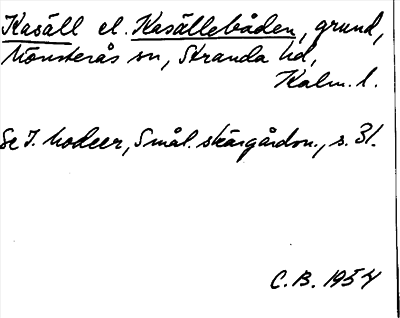 Kasäll el. Kasällebåden, grund,
Mönsterås sn, Stranda hd,
Kalm. l.
Se I. Modeer, Smål. skärgårdsn., s. 31.
C.B. 1954